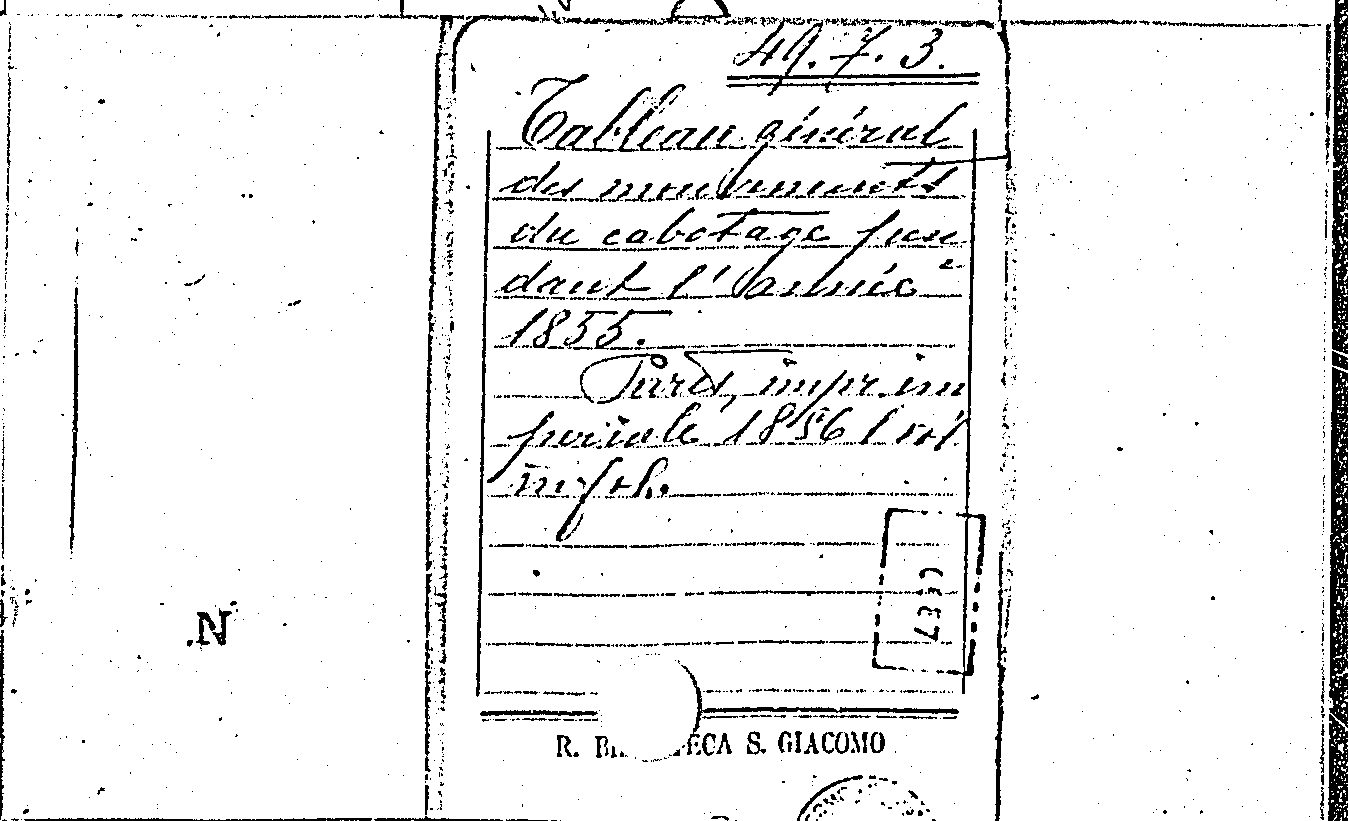 49.7.3.
Tableau général
des mouvements
du cabotage pen
dant l'année
1855.
Paris, impr. im
periale 1856 1 vol
in-fol.
N
R. B TECA S. GIACOMO